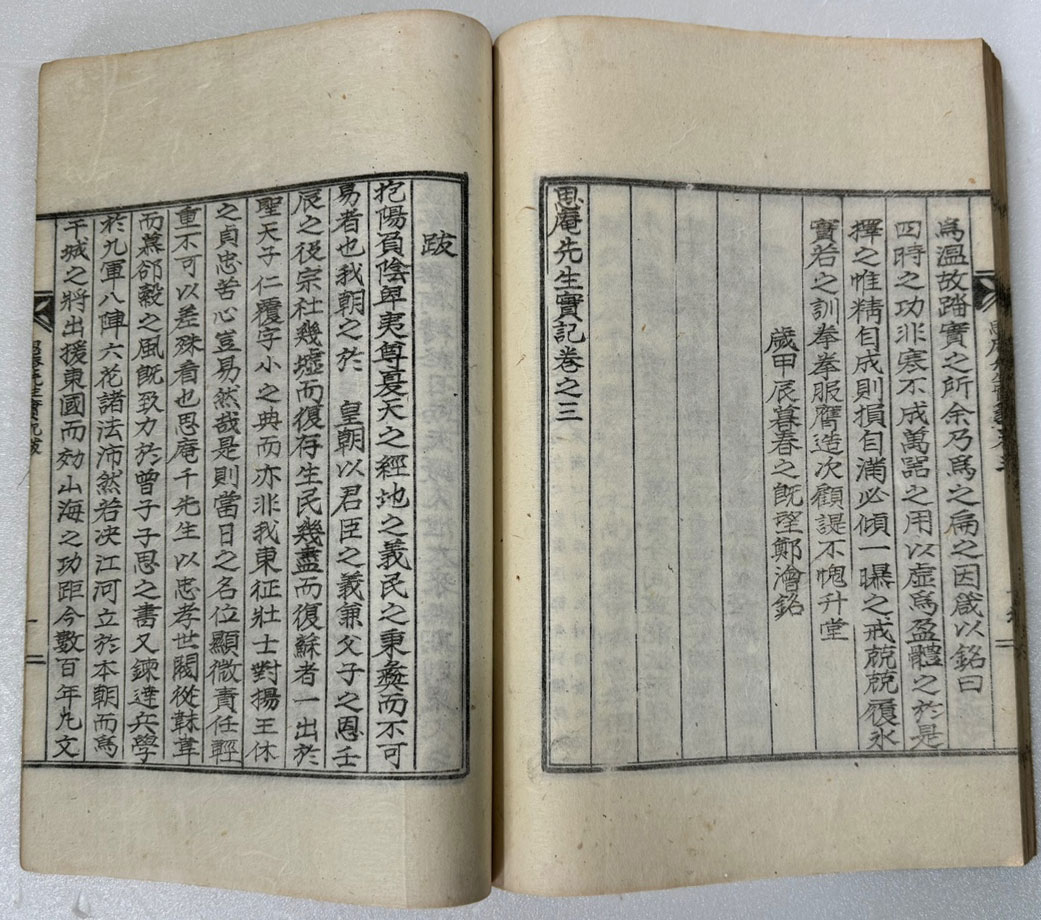 爲溫故踏實之所余乃爲之扁之因箴以銘曰
四時之功非寒不成萬器之用以虛爲盈體之於是
擇之惟精自成則損自滿必傾一曝之戒兢兢履氷
實若之訓拳拳服膺造次顧諟不愧升堂
歲甲辰暮春之旣望鄭澮銘
思庵先生實記卷之三
跋
抱陽負陰卑夷尊夏天之經地之義民之秉彝而不可
易者也我朝之於 皇朝以君臣之義兼父子之恩壬
辰之後宗社幾墟而復存生民幾盡而復蘇者一出於
聖天子仁覆字小之典而亦非我東征壯士對揚王休
之貞忠苦心豈易然哉是則當日之名位顯微責任輕
重不可以差殊看也思庵千先生以忠孝世閥從韎韋
而慕郤縠之風旣致力於曾子子思之書又鍊達兵學
於九軍八陣六花諸法沛然若决江河立於本朝而爲
干城之將出援東國而効山海之功距今數百年凡文